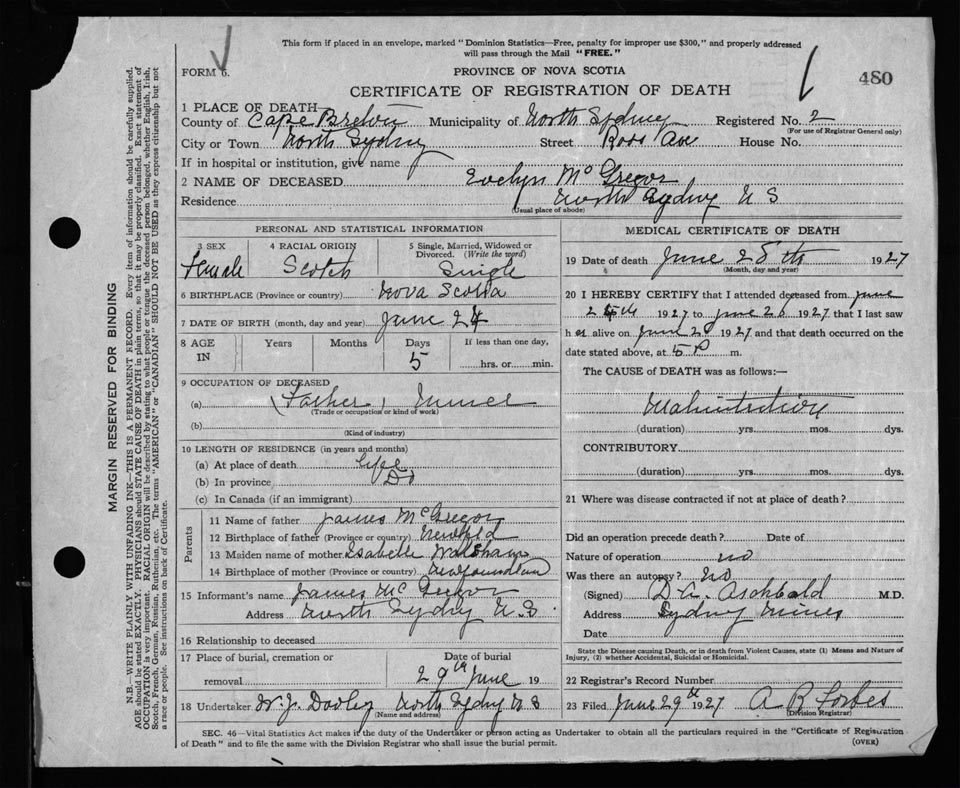 This form if placed in an envelope, marked "Dominion Statistics—Free, penalty for improper use $300," and properly addressed
will pass through the Mail "FREE."
FORM 6.
PROVINCE OF NOVA SCOTIA
480
CERTIFICATE OF REGISTRATION OF DEATH
1 PLACE OF DEATH
County of Cape Breton Municipality of North Sydney Registered No. 2
(For use of Registrar General only)
City or Town North Sydney Street Ross Ave House No.
If in hospital or institution, give name
2 NAME OF DECEASED Evelyn McGregor
Residence North Sydney N S
(Usual place of abode)
PERSONAL AND STATISTICAL INFORMATION
3 SEX 4 RACIAL ORIGIN 5 Single, Married, Widowed or
Divorced. (Write the word)
Female Scotch Single
6 BIRTHPLACE (Province or country) Nova Scotia
7 DATE OF BIRTH (month, day and year) June 24
8 AGE IN Years Months Days If less than one day,
5 hrs. or min.
9 OCCUPATION OF DECEASED
(a) (Father) Miner
(Trade or occupation or kind of work)
(b)
(Kind of industry)
10 LENGTH OF RESIDENCE (in years and months)
(a) At place of death Life
(b) In province Do
(c) In Canada (if an immigrant)
Parents
11 Name of father James McGregor
12 Birthplace of father (Province or country) Newfld
13 Maiden name of mother Isabelle
14 Birthplace of mother (Province or country) Newfoundlan
15 Informant's name James McGregor
Address North Sydney N.S.
16 Relationship to deceased
17 Place of burial, cremation or Date of burial
removal 29th June 19
18 Undertaker W. J. Dooley North Sydney N S
(Name and address)
MEDICAL CERTIFICATE OF DEATH
19 Date of death June 28th 1927
(Month, day and year)
20 I HEREBY CERTIFY that I attended deceased from June
1927 to June 28 1927 that I last saw
h er alive on June 28 1927 and that death occurred on the
date stated above, at 5 P m.
The CAUSE of DEATH was as follows:—
Malnutrition
(duration) yrs. mos. dys.
CONTRIBUTORY
(duration) yrs. mos. dys.
21 Where was disease contracted if not at place of death?
Did an operation precede death? Date of
Nature of operation no
Was there an autopsy? No
(Signed) D.A. Archbald M.D.
Address Sydney Mines
Date
State the Disease causing Death, or in death from Violent Causes, state (1) Means and Nature of
Injury, (2) whether Accidental, Suicidal or Homicidal.
22 Registrar's Record Number
23 Filed June 29th 1927 A R Forbes
(Division Registrar)
SEC. 46—Vital Statistics Act makes it the duty of the Undertaker or person acting as Undertaker to obtain all the particulars required in the "Certificate of Registration
of Death" and to file the same with the Division Registrar who shall issue the burial permit.
(OVER)
MARGIN RESERVED FOR BINDING
N.B.—WRITE PLAINLY WITH UNFADING INK—THIS IS A PERMANENT RECORD. Every item of information should be carefully supplied.
AGE should be stated EXACTLY. PHYSICIANS should STATE CAUSE OF DEATH in plain terms, so that it may be properly classified. Exact statement of
OCCUPATION is very important. RACIAL ORIGIN will be described by stating to what people or tongue the deceased person belonged, whether English, Irish,
Scotch, French, German, Russian, Ruthenian, etc. The terms "AMERICAN" or "CANADIAN" SHOULD NOT BE USED as they express citizenship but not
a race or people. See instructions on back of Certificate.